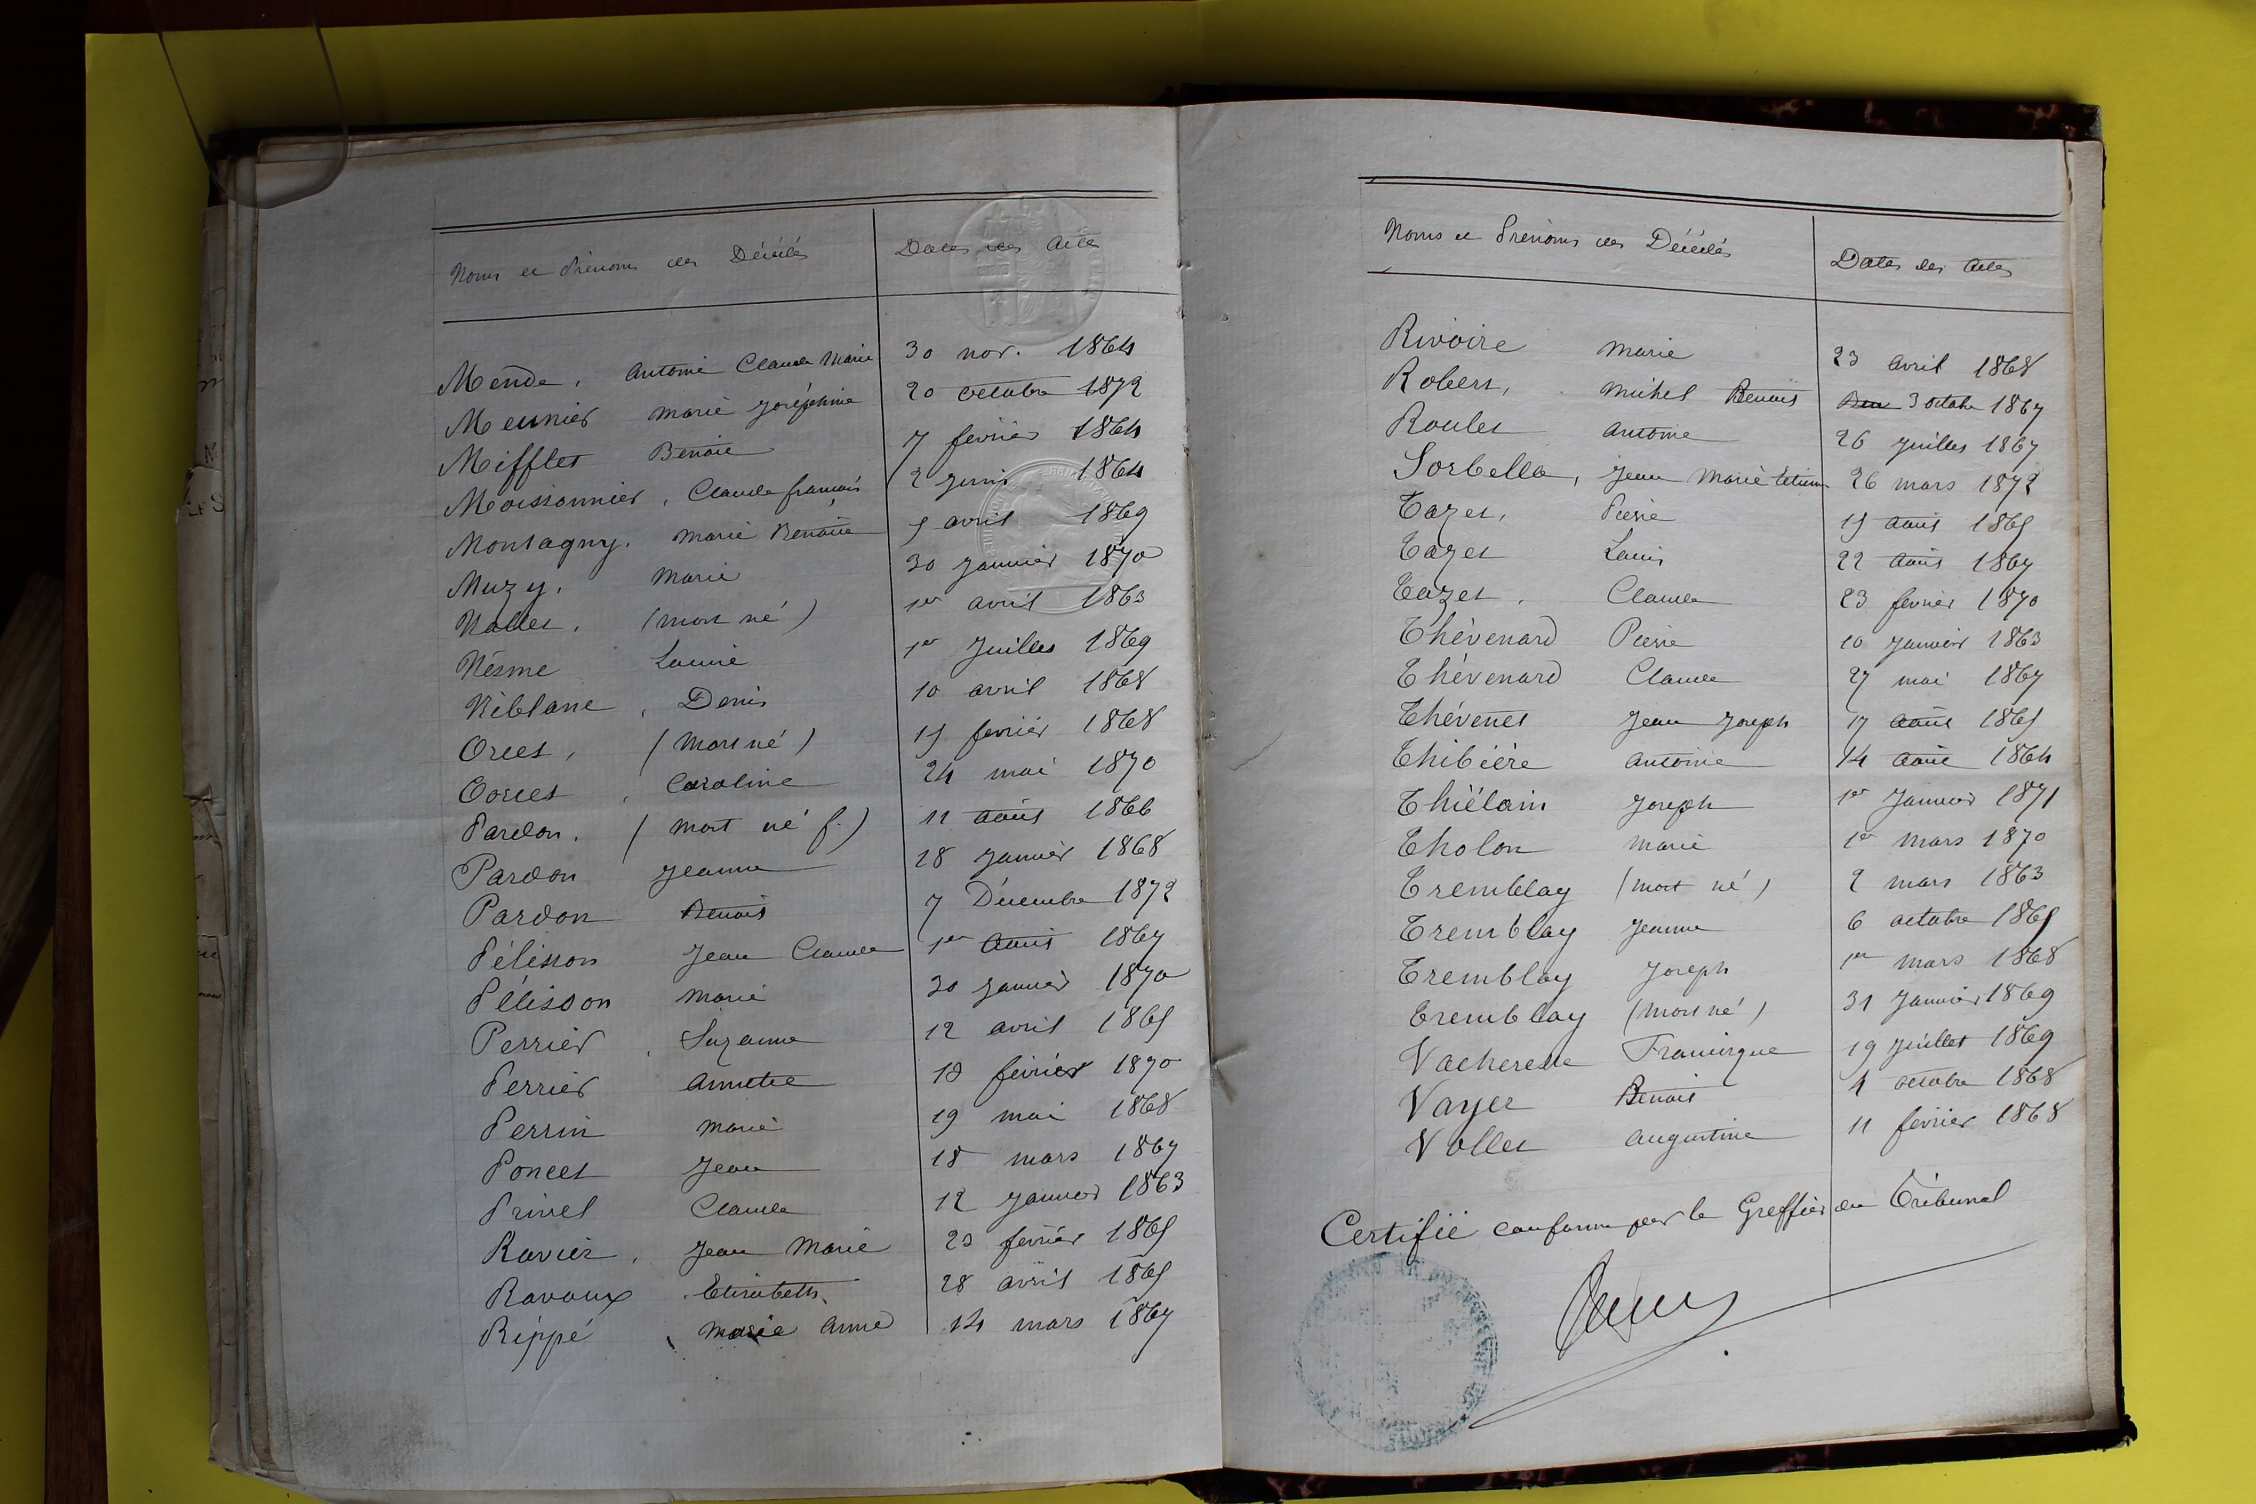 Noms et Prénoms des Décédés Dates des Actes
Mende, Antoine Claude Marie 30 nov. 1864
Meunier Marie Joséphine 20 octobre 1872
Mifflet Benoit 7 février 1864
Moissonnier, Claude françois 2 juin 1864
Montagny. Marie Benoite 5 avril 1869
Muzy. Marie 30 Janvier 1870
Nallet. (mort né) 1er avril 1863
Nésme Laurie 1er Juillet 1869
Niblane, Denis 10 avril 1868
Orcet, (Mort né) 15 février 1868
Oorcet, Caroline 24 mai 1870
Pardon. (mort né f.) 11 août 1866
Pardon Jeanne 28 Janvier 1868
Pardon Benoit 7 Décembre 1872
Pélisson Jean Claude 1er Août 1867
Pélisson Marie 30 Janvier 1870
Perrier, Suzanne 12 avril 1865
Perrier Annette 18 février 1870
Perrin Marie 19 mai 1868
Poncet Jean 18 mars 1867
Privel Claude 12 Janvier 1863
Ravier, Jean Marie 23 février 1865
Ravaux Elisabeth 28 avril 1865
Rippé Marie Anne 14 mars 1867
Noms et Prénoms des Décédés Dates des Actes
Rivoire Marie 23 avril 1868
Robert, Michel Benoit 3 octobre 1867
Roulet Antoine 26 Juillet 1867
Sorbella, Jean Marie Etienne 26 mars 1872
Tazet, Pierre 15 août 1865
Tazet Louis 22 août 1867
Tazet, Claude 23 février 1870
Thévenard Pierre 10 Janvier 1863
Thévenard Claude 27 mai 1867
Thévenet Jean Joseph 17 août 1865
Thibière Antoine 14 août 1864
Thiélain Joseph 1er Janvier 1871
Tholon Marie 1er mars 1870
Tremblay (mort né) 2 mars 1863
Tremblay Jeanne 6 octobre 1865
Tremblay Joseph 1er mars 1868
Tremblay (mort né) 31 Janvier 1869
Vacheresse Françoise 19 Juillet 1869
Vayer Benoit 4 octobre 1868
Vollet Augustine 11 février 1868
Certifié conforme par le Greffier du Tribunal